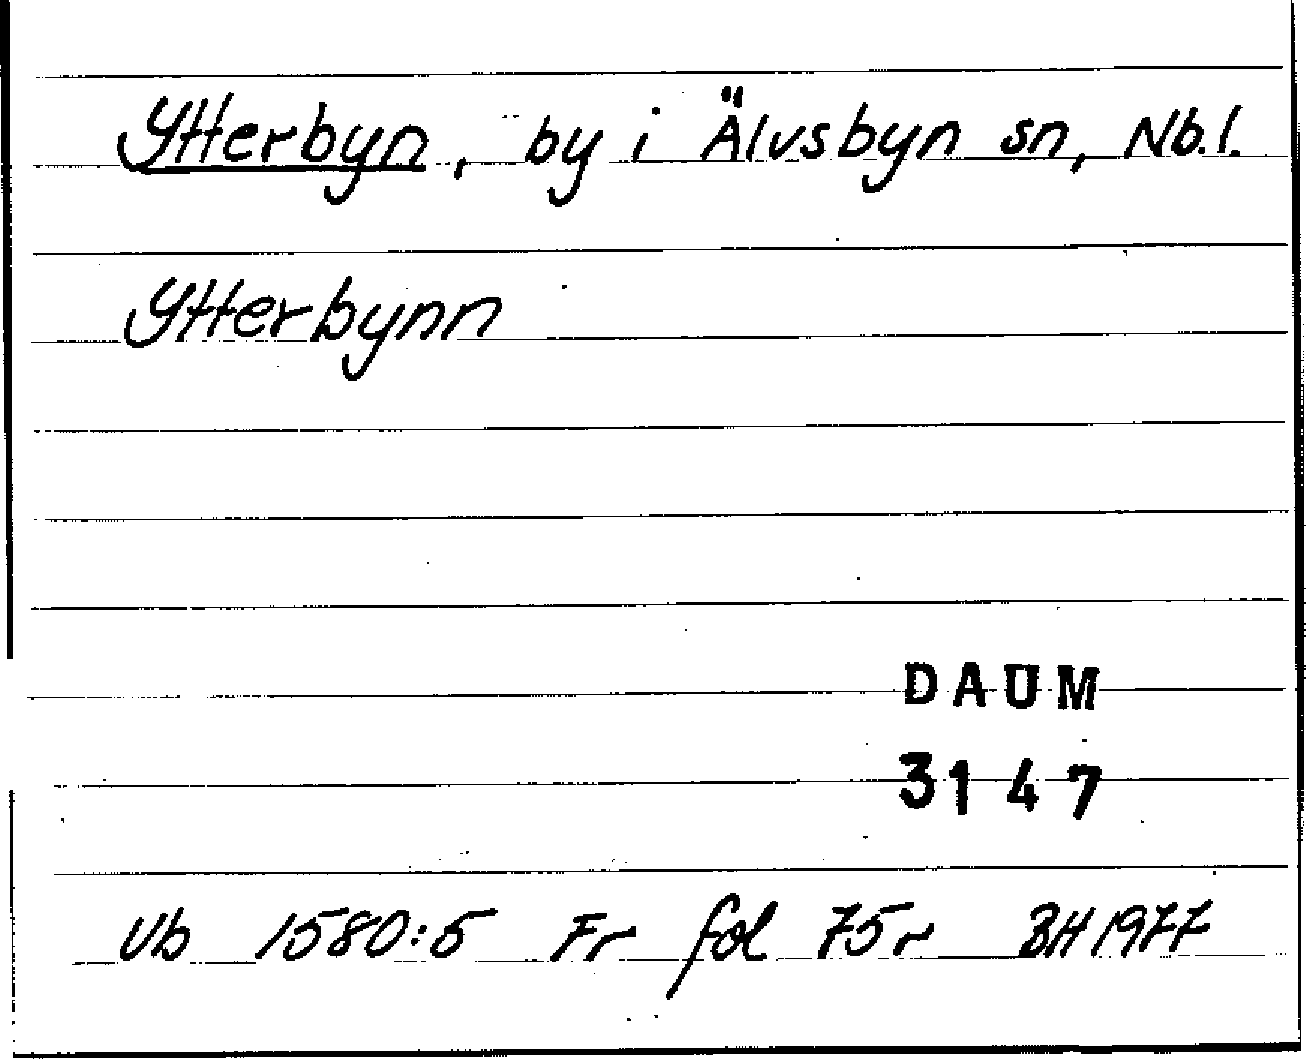 Ytterbyn, by i Älvsbyn sn, Nb.l.
Ytterbynn
DAUM
3147
Vb 1580:5 Fr fol 75r BH 1977